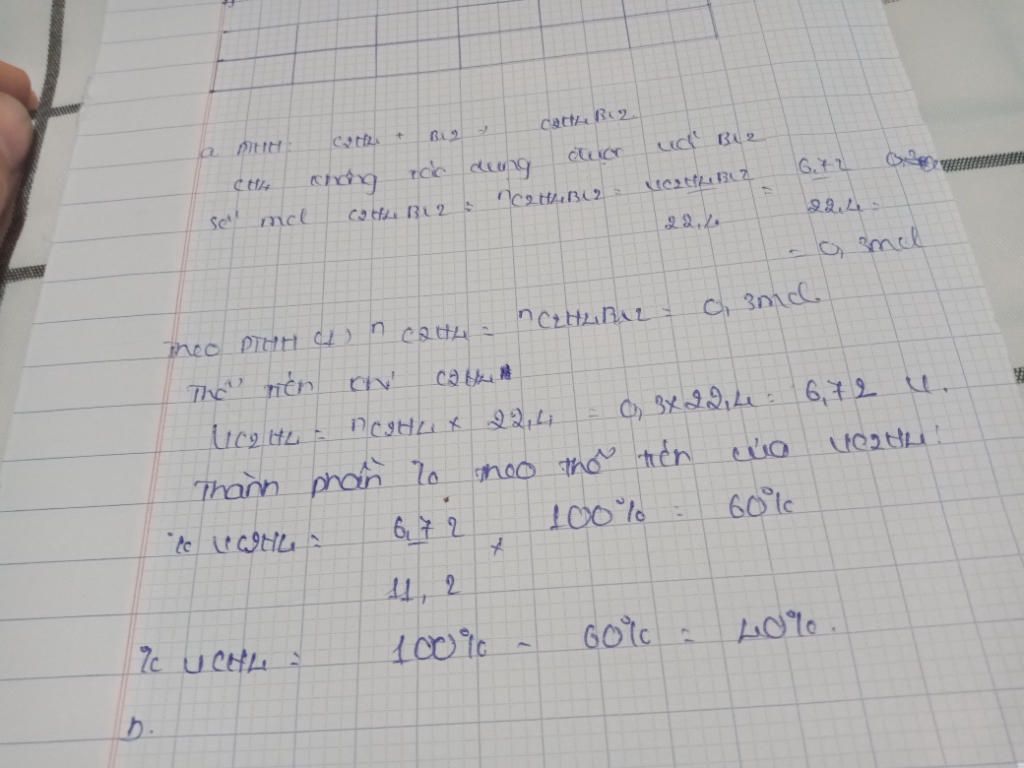 a PTHH: C2H4 + Br2 → C2H4Br2
CH4 không tác dụng được với Br2
số mol C2H4Br2 = nC2H4Br2 = VC2H4Br2 / 22,4 = 6,72 / 22,4 =
= 0,3mol
Theo PTHH (1) nC2H4 = nC2H4Br2 = 0,3mol
Thể tích khí C2H4
VC2H4 = nC2H4 x 22,4 = 0,3x22,4 = 6,72 l.
Thành phần % theo thể tích của VC2H4:
% VC2H4 = 6,72 / 11,2 x 100% = 60%
% VCH4 = 100% - 60% = 40%.
b.